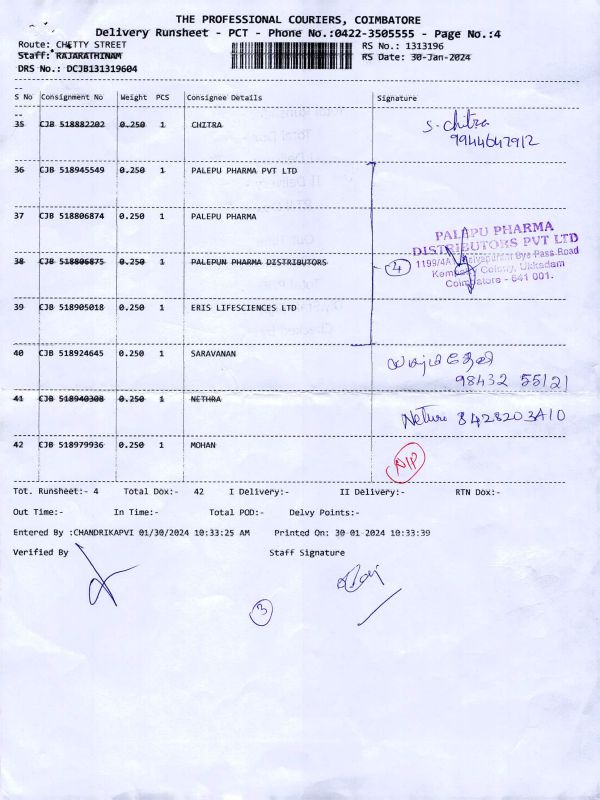 THE PROFESSIONAL COURIERS, COIMBATORE
Delivery Runsheet - PCT - Phone No.:0422-3505555 - Page No.:4
Route: CHETTY STREET RS No.: 1313196
Staff: RAJARATHINAM RS Date: 30-Jan-2024
DRS No.: DCJB131319604
S No Consignment No Weight PCS Consignee Details Signature
35 CJB 518882202 0.250 1 CHITRA
S. Chitra
9944647912
36 CJB 518945549 0.250 1 PALEPU PHARMA PVT LTD
37 CJB 518806874 0.250 1 PALEPU PHARMA
PALEPU PHARMA
DISTRIBUTORS PVT LTD
38 CJB 518806875 0.250 1 PALEPUN PHARMA DISTRIBUTORS
4
1199/4A Bye Pass Road
Colony, Ukkadam
Coimbatore - 641 001.
39 CJB 518905018 0.250 1 ERIS LIFESCIENCES LTD
40 CJB 518924645 0.250 1 SARAVANAN
98432 55121
41 CJB 518940308 0.250 1 NETHRA
42 CJB 518979936 0.250 1 MOHAN
N/P
Tot. Runsheet:- 4 Total Dox:- 42 I Delivery:- II Delivery:- RTN Dox:-
Out Time:- In Time:- Total POD:- Delvy Points:-
Entered By :CHANDRIKAPVI 01/30/2024 10:33:25 AM Printed On: 30-01-2024 10:33:39
Verified By Staff Signature
3